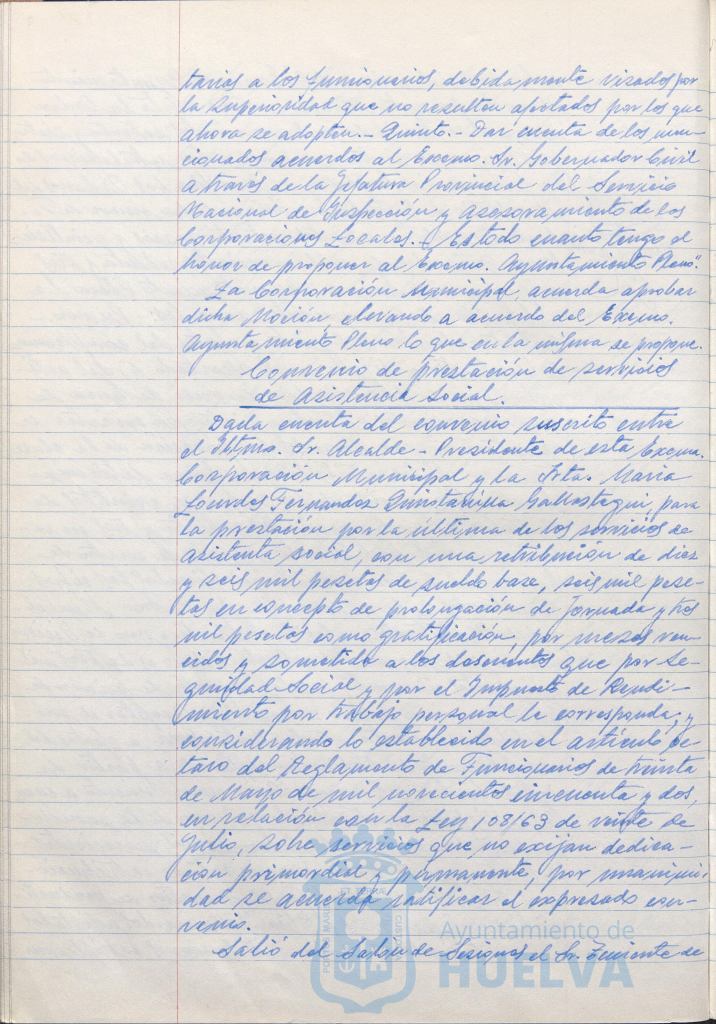 tarias a los funcionarios, debidamente visados por
la Superioridad que no resulten afectados por los que
ahora se adopten.- Quinto.- Dar cuenta de los men-
cionados acuerdos al Excmo. Sr. Gobernador Civil
a través de la Jefatura Provincial del Servicio
Nacional de Inspección y Asesoramiento de las
Corporaciones Locales.- Es todo cuanto tengo el
honor de proponer al Excmo. Ayuntamiento Pleno".
La Corporación Municipal, acuerda aprobar
dicha Moción, elevando a acuerdo del Excmo.
Ayuntamiento Pleno lo que en la misma se propone.
Convenio de prestación de servicios
de Asistencia Social.
Dada cuenta del convenio suscrito entre
el Iltmo. Sr. Alcalde-Presidente de esta Excma.
Corporación Municipal y la Srta. María
Lourdes Fernandez Quintanilla Gallastegui, para
la prestación por la última de los servicios de
asistenta social, con una retribución de diez
y seis mil pesetas de sueldo base, seis mil pese-
tas en concepto de prolongación de Jornada y tres
mil pesetas como gratificación, por meses ven-
cidos y sometida a los descuentos que por Se-
guridad Social y por el Impuesto de Rendi-
miento por trabajo personal le corresponda; y
considerando lo establecido en el artículo oc-
tavo del Reglamento de Funcionarios de treinta
de Mayo de mil novecientos cincuenta y dos,
en relación con la Ley 108/63 de veinte de
Julio, sobre servicios que no exijan dedica-
ción primordial y permanente, por unanimi-
dad se acuerda ratificar el expresado con-
venio.
Salió del Salón de Sesiones el Sr. Teniente de
Ayuntamiento de
HUELVA